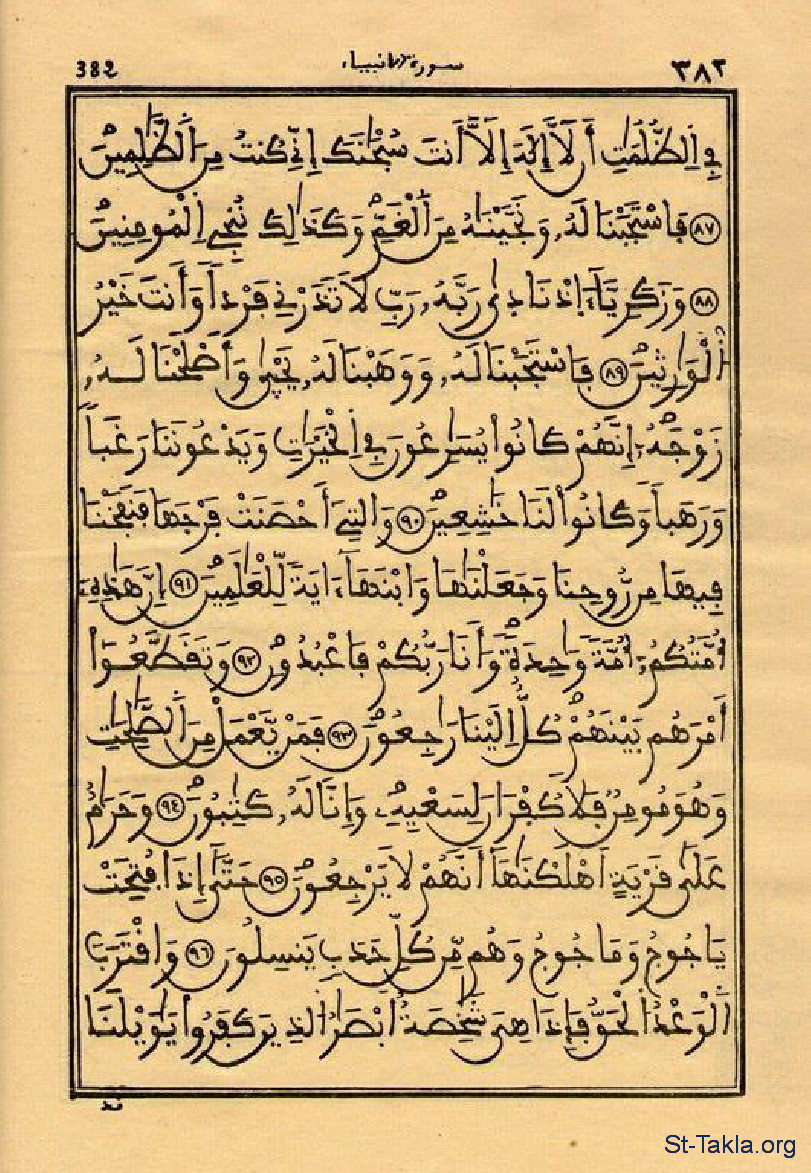 382 سورة الانبياء ٣٨٢
فِے اِ۬لظُّلُمَٰتِ أَن لَّآ إِلَٰهَ إِلَّآ أَنتَ سُبْحَٰنَكَ إِنِّے كُنتُ مِنَ اَ۬لظَّٰلِمِينَ
٨٧ فَاسْتَجَبْنَا لَهُۥ وَنَجَّيْنَٰهُ مِنَ اَ۬لْغَمِّ وَكَذَٰلِكَ نُۨجِے اِ۬لْمُومِنِينَ
٨٨ وَزَكَرِيَّآءَ اِذْ نَادَىٰ رَبَّهُۥ رَبِّ لَا تَذَرْنِے فَرْداً وَأَنتَ خَيْرُ
اُ۬لْوَٰرِثِينَ ٨٩ فَاسْتَجَبْنَا لَهُۥ وَوَهَبْنَا لَهُۥ يَحْيَىٰ وَأَصْلَحْنَا لَهُۥ
زَوْجَهُۥٓ إِنَّهُمْ كَانُواْ يُسَٰرِعُونَ فِے اِ۬لْخَيْرَٰتِ وَيَدْعُونَنَا رَغَباً
وَرَهَباً وَكَانُواْ لَنَا خَٰشِعِينَ ٩٠ وَالتِےٓ أَحْصَنَتْ فَرْجَهَا فَنَفَخْنَا
فِيهَا مِن رُّوحِنَا وَجَعَلْنَٰهَا وَابْنَهَآ ءَايَةً لِّلْعَٰلَمِينَ ٩١ إِنَّ هَٰذِهِۦٓ
أُمَّتُكُمُۥٓ أُمَّةً وَٰحِدَةً وَأَنَا رَبُّكُمْ فَاعْبُدُونِ ٩٢ وَتَقَطَّعُوٓاْ
أَمْرَهُم بَيْنَهُمْ كُلٌّ اِلَيْنَا رَٰجِعُونَ ٩٣ فَمَنْ يَّعْمَلْ مِنَ اَ۬لصَّٰلِحَٰتِ
وَهُوَ مُومِنٌ فَلَا كُفْرَانَ لِسَعْيِهِۦ وَإِنَّا لَهُۥ كَٰتِبُونَ ٩٤ وَحَرَٰمٌ
عَلَىٰ قَرْيَةٍ اَهْلَكْنَٰهَآ أَنَّهُمْ لَا يَرْجِعُونَ ٩٥ حَتَّىٰٓ إِذَا فُتِحَتْ
يَاجُوجُ وَمَاجُوجُ وَهُم مِّن كُلِّ حَدَبٍ يَنسِلُونَ ٩٦ وَاقْتَرَبَ
اَ۬لْوَعْدُ اُ۬لْحَقُّ فَإِذَا هِيَ شَٰخِصَةٌ اَبْصَٰرُ اُ۬لذِينَ كَفَرُواْ يَٰوَيْلَنَا
قد
St-Takla.org